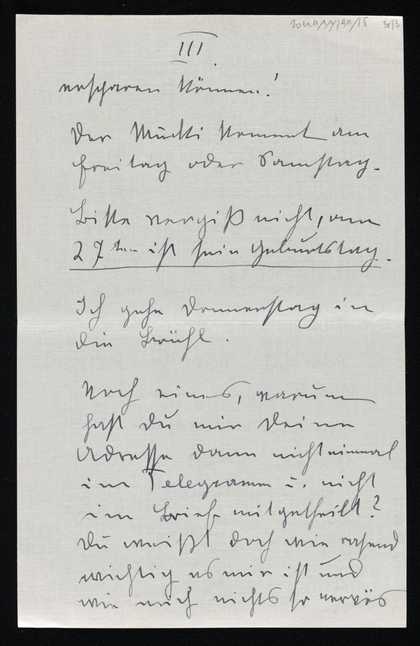 III.
ersparen können!
Der Mucki kommt am
Freitag oder Samstag.
Bitte vergiß nicht, am
27ten ist sein Geburtstag.
Ich gehe Donnerstag in
die Brühl.
Noch eines, warum
hast du mir Deine
Adresse dann nicht einmal
im Telegramm u. nicht
im Brief mitgetheilt?
Du weißt doch wie rasend
wichtig es mir ist und
wie mich nichts so nervös